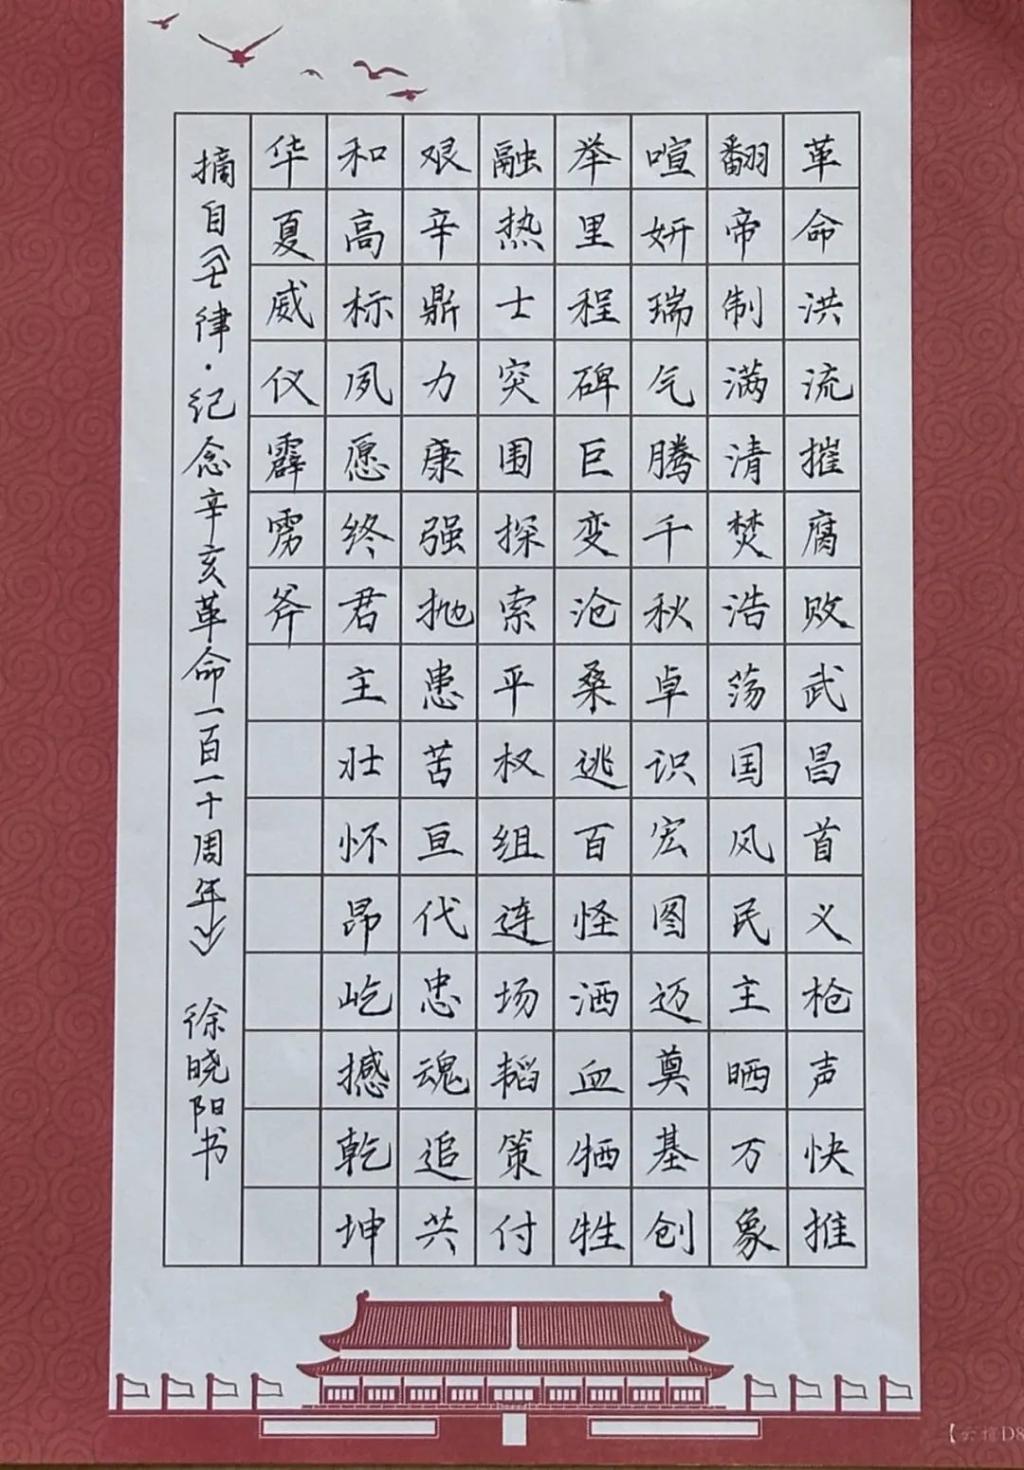 革命洪流摧腐败武昌首义枪声快推
翻帝制满清焚浩荡国风民主晒万象
喧妍瑞气腾千秋卓识宏图迈奠基创
举里程碑巨变沧桑逃百怪洒血牺牲
融热士突围探索平权组连场韬策付
艰辛鼎力康强抛患苦亘代忠魂追共
和高标夙愿终君主壮怀昂屹撼乾坤
华夏威仪霹雳斧
摘自《七律·纪念辛亥革命一百一十周年》 徐晓阳书